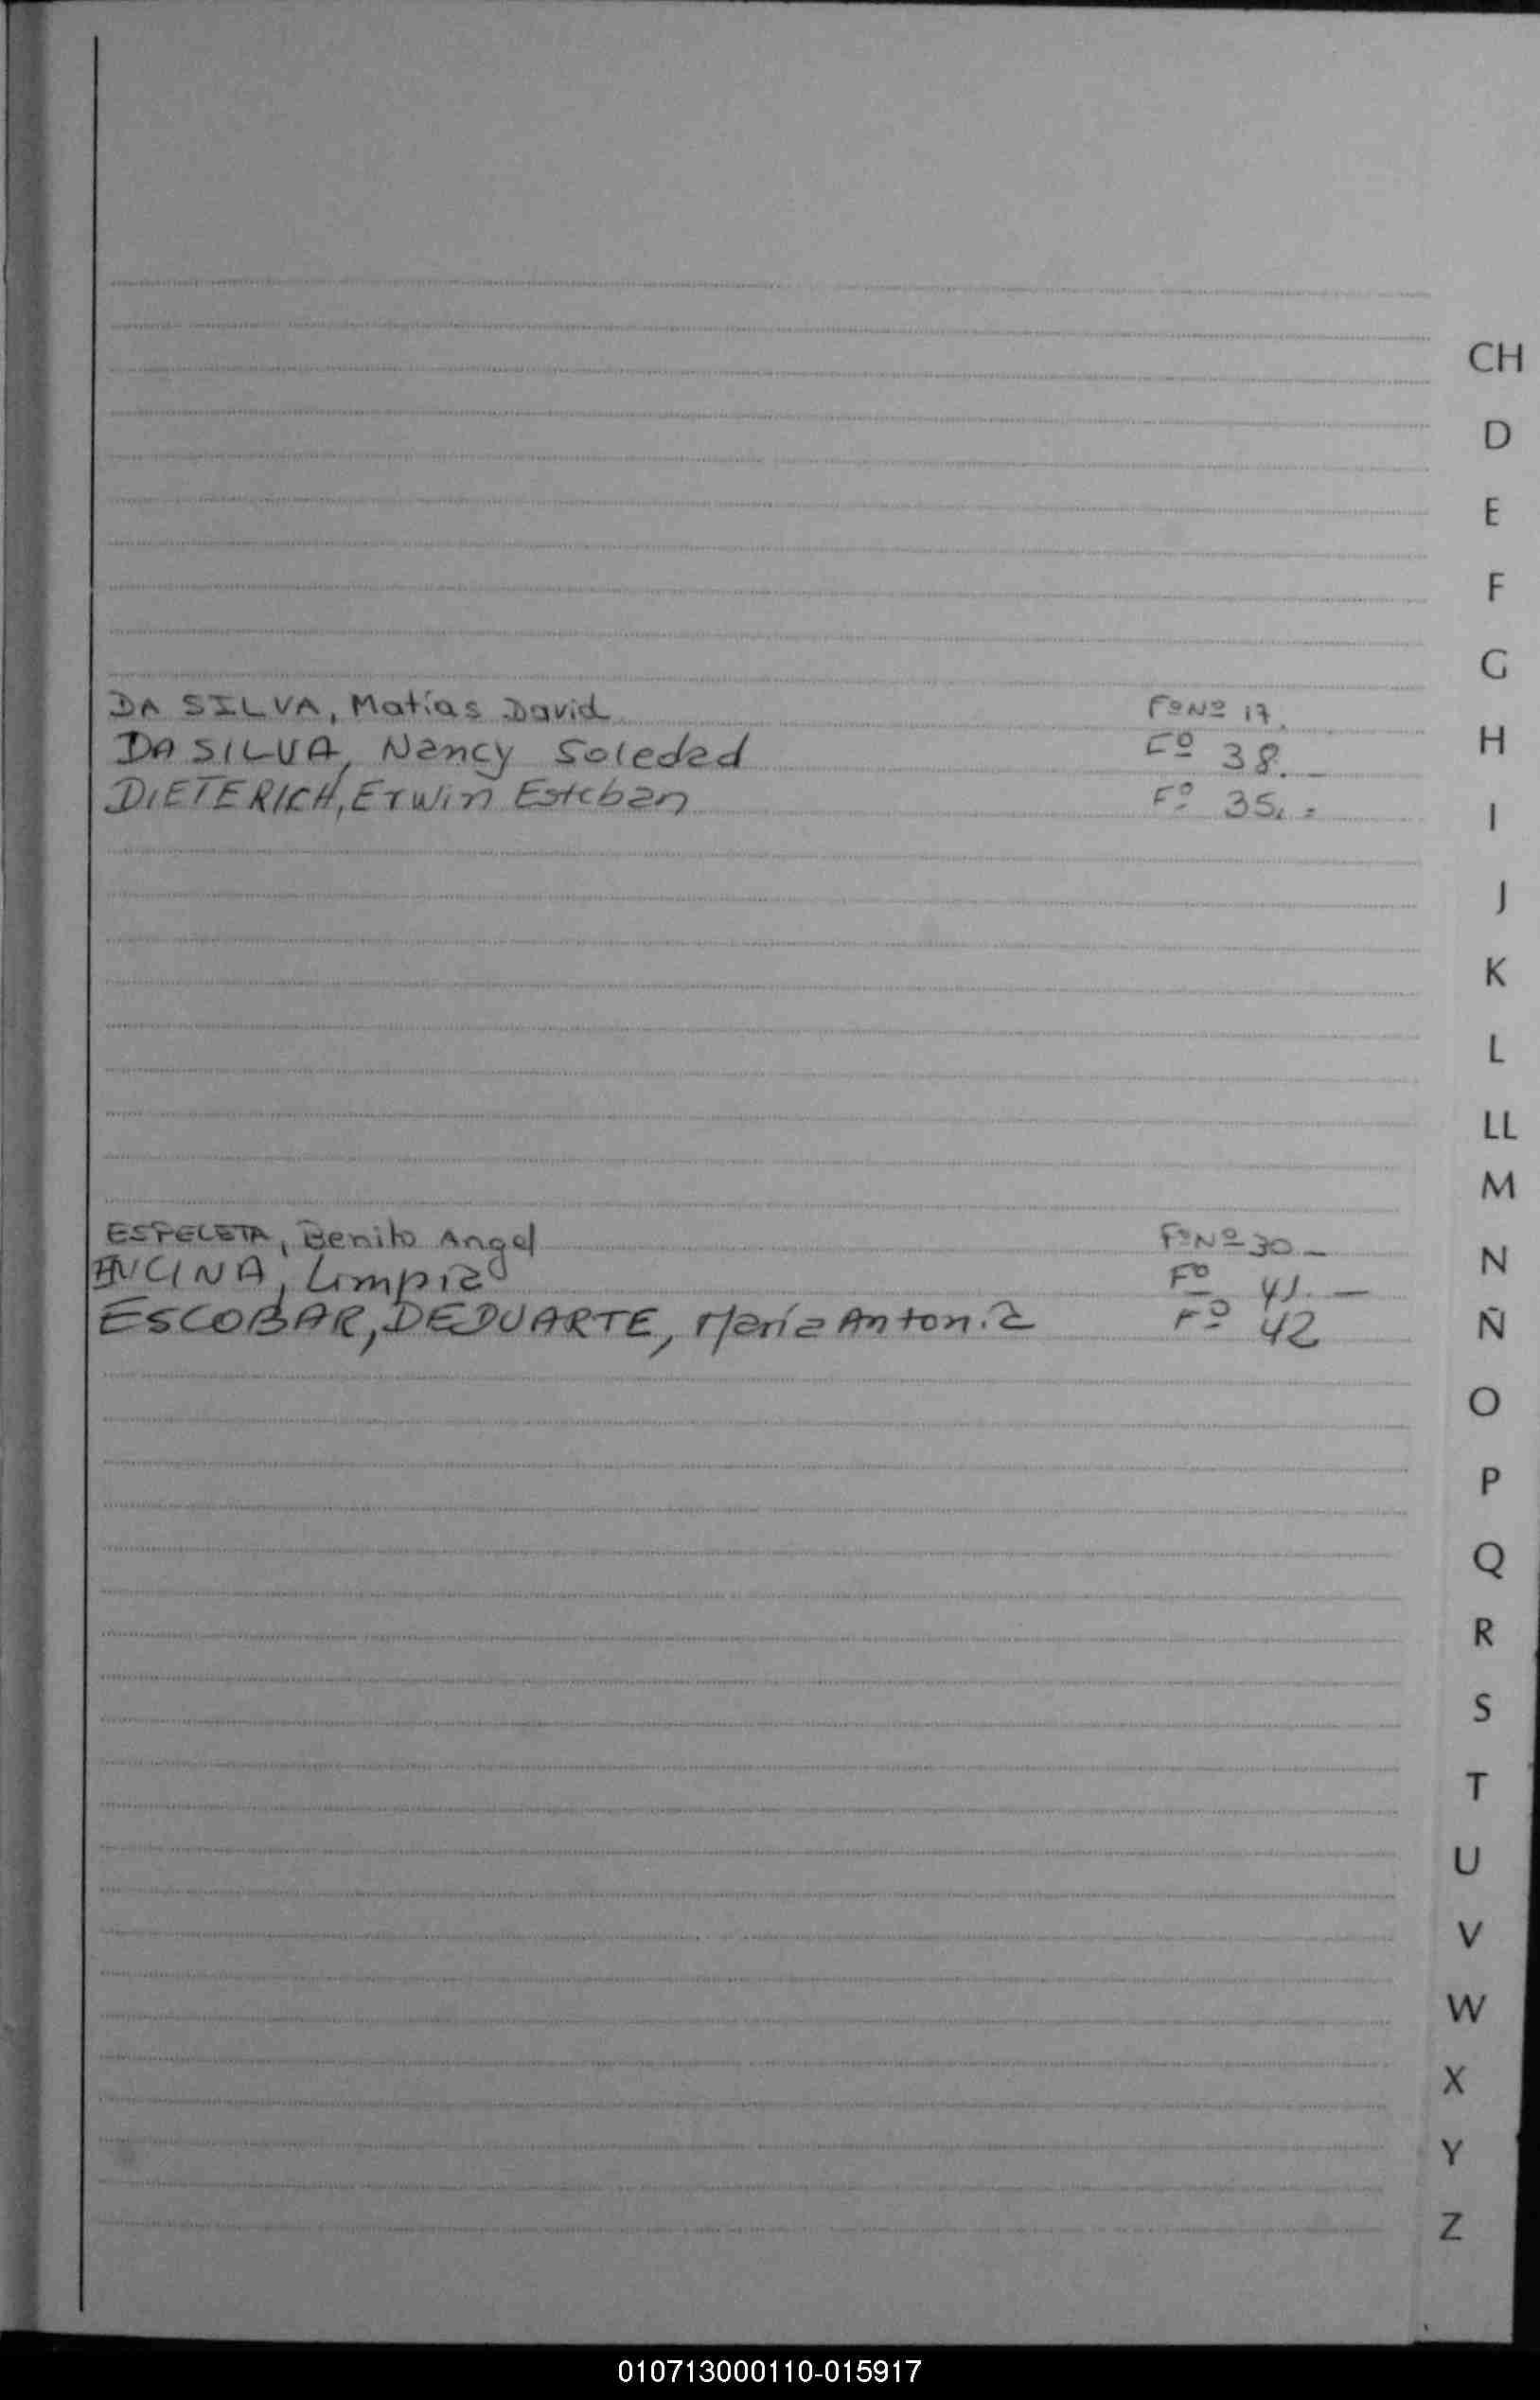 CH
D
E
F
G
DA SILVA, Matías David FºNº 17.
H
DA SILVA, Nancy Soledad Fº 38. _
DIETERICH, Erwin Esteban Fº 35. =
I
J
K
L
LL
M
ESPELETA, Benito Angel FºNº 30 _
N
ENCINA, Limpia Fº 41. _
ESCOBAR, DEDUARTE, María Antonia Fº 42
Ñ
O
P
Q
R
S
T
U
V
W
X
Y
Z
010713000110-015917